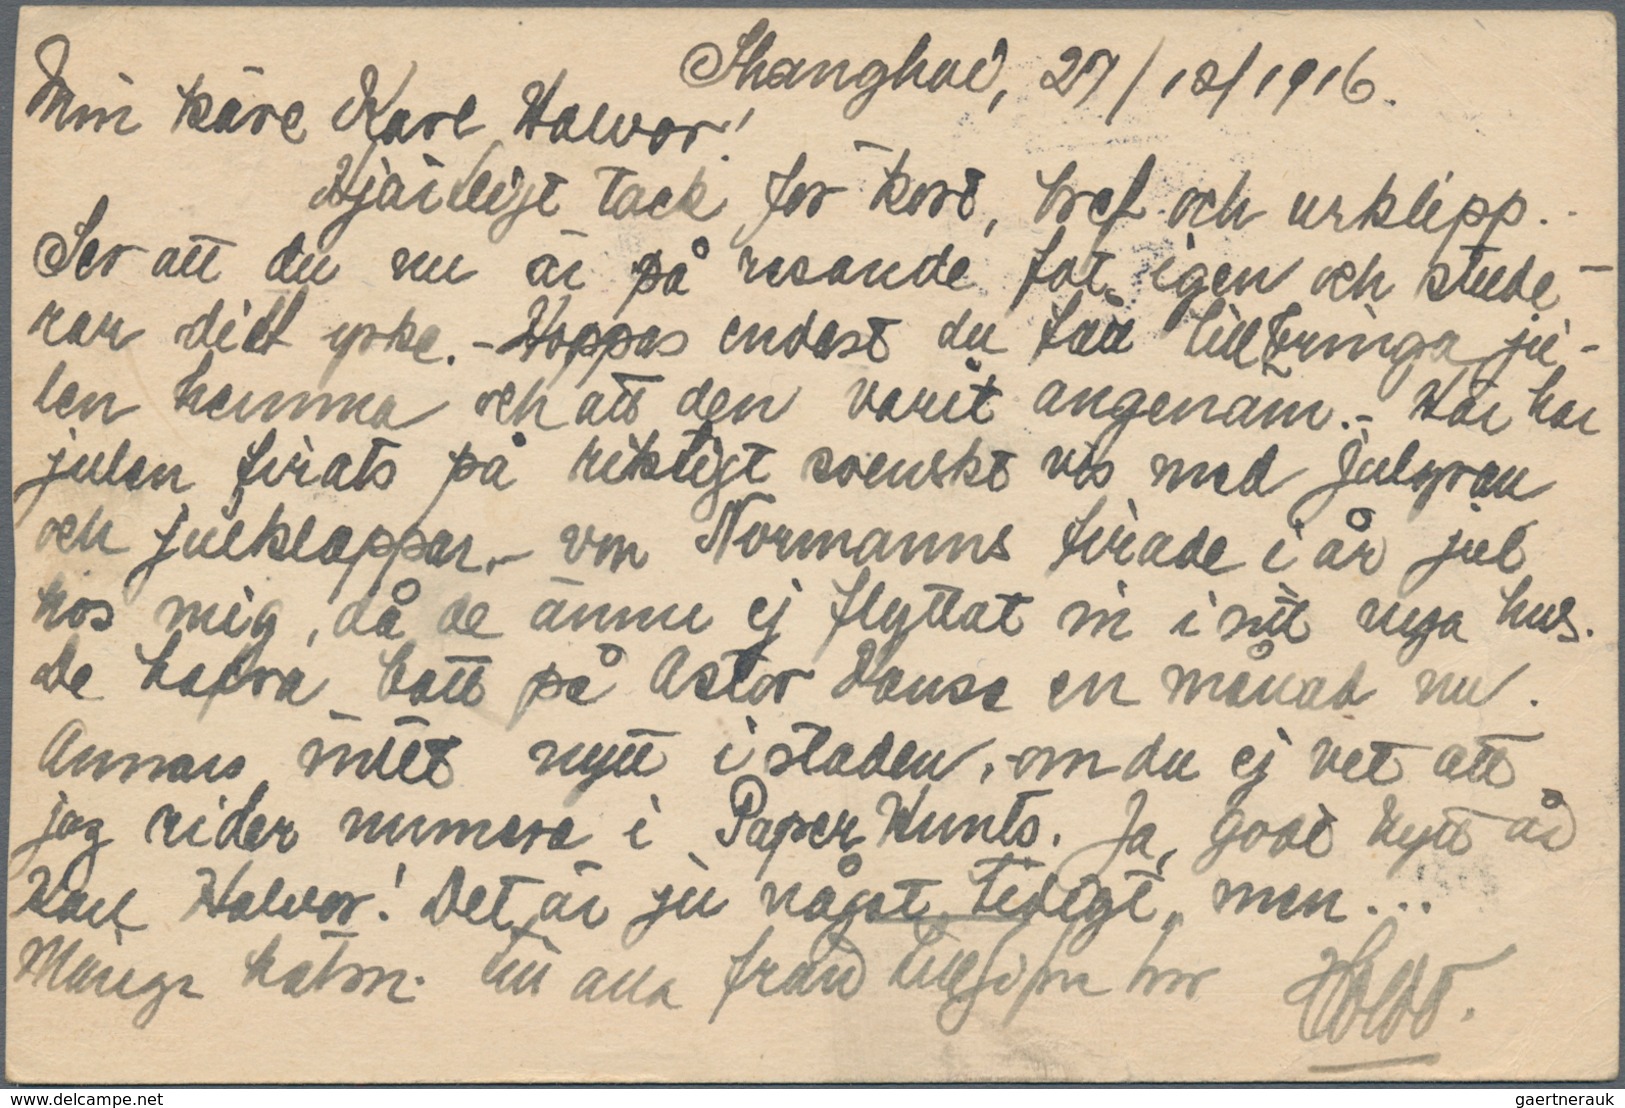 Shanghai, 27/12/1916.
Min käre Karl Halvor!
Hjärtligt tack för kort, bref och urklipp.
Ser att du nu är på resande fot igen och stude-
rar ditt yrke. - Hoppas endast du får tillbringa ju-
len hemma och att den varit angenäm. - Här har
julen firats på riktigt svenskt vis med julgran
och julklappar. - von Normanns firade i år jul
hos mig, då de ännu ej flyttat in i sitt nya hus.
De hafva bott på Astor House en månad nu.
Annars intet nytt i staden, om du ej vet att
jag rider numera i Paper Hunts. Ja, Godt Nytt år
Karl Halvor! Det är ju något tidigt, men...
Många hälsn. till alla från
www.ehstamps.com
gaertnerauk